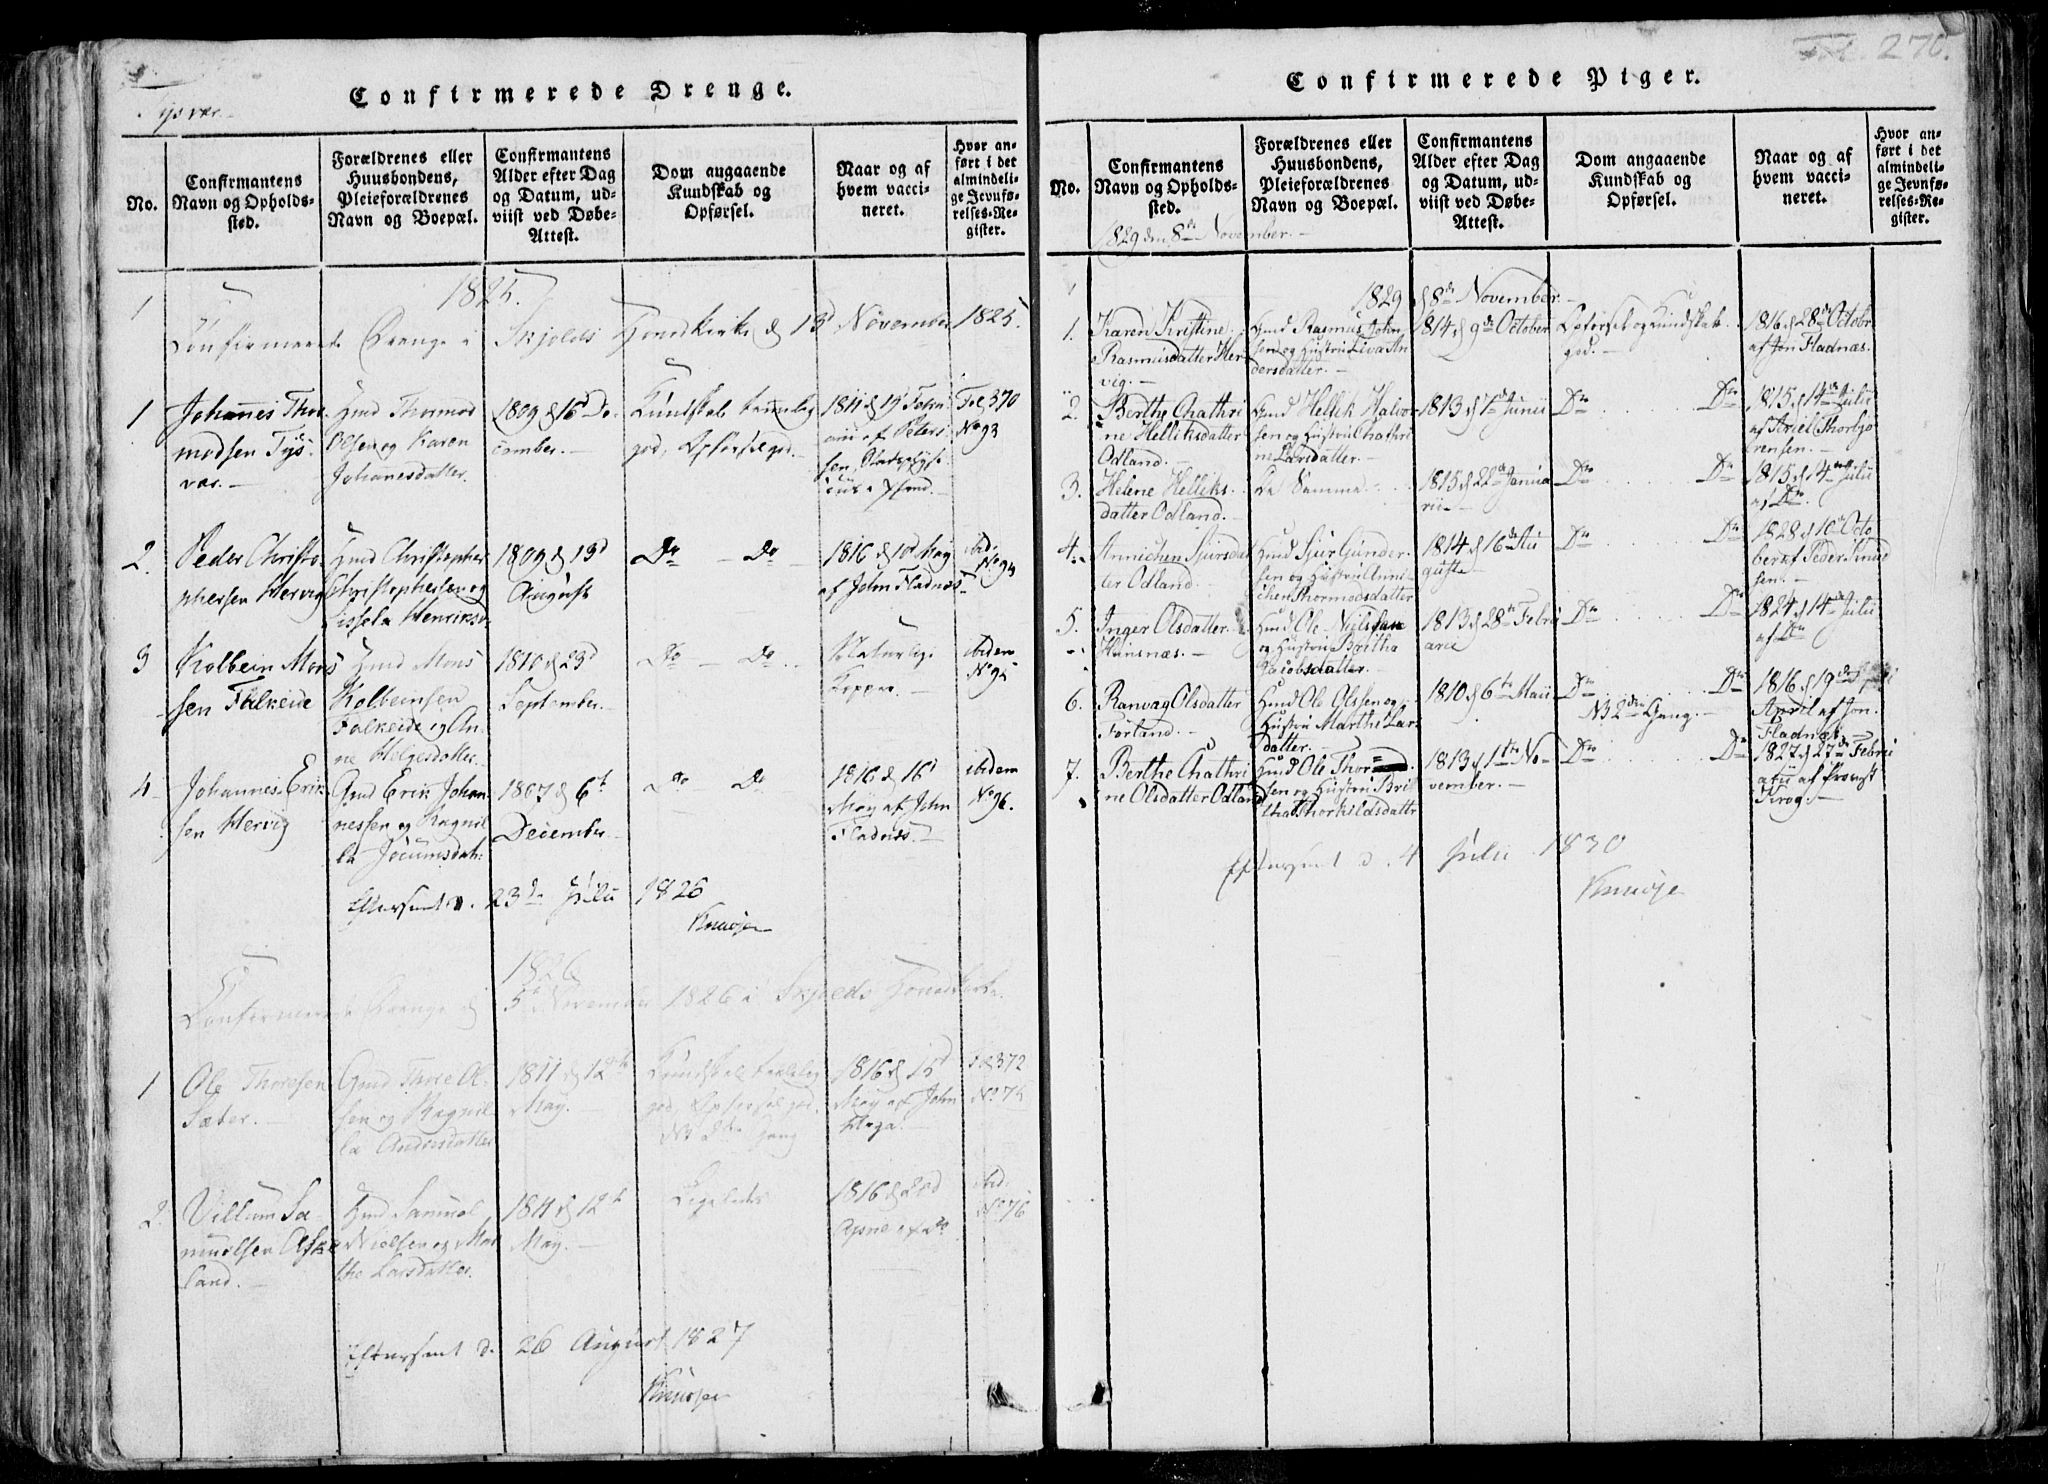 Tysvær
Confirmerede Drenge.
No.
Confirmantens
Navn og Opholds-
sted.
Forældrenes eller
Huusbondens,
Pleieforældrenes
Navn og Boepæl.
Confirmantens
Alder efter Dag
og Datum, ud-
viist ved Døbe-
Attest.
Dom angaaende
Kundskab og
Opførsel.
Naar og af
hvem vacci-
neret.
Hvor an-
ført i det
almindeli-
ge Jevnfø-
relses-Re-
gister.
1825.
Confirmerede Drenge i Skjolds Hovedkirke d 13d November 1825.
1
Johannes Thor
modsen Tys-
vær.
Gmd Thormod
Olsen og Karen
Johannesdatter.
1809 d 16d De-
cember.
Kundskab temmelig
god, Opførsel god.
1811 d 19 Febru
arii af Peter
Fol 370
No 93
2.
Peder Christo
phersen Hervig
Gmd Christopher
Christophersen og
Sissela Henriksd
1809 d 13d
August
Do — Do
1816 d 10d May
af John Fladnæs
ibid.
No 94
3
Kolbein Mons
sen Falkeide
Gmd Mons
Kolbeinsen
Falkeide og An-
ne Helgesdatter.
1810 d 23d
September.
Do — Do
Naturlige
Kopper.
ibidem
No 95
4
Johannes Erik
sen Hervig
Gmd Erik Johan-
nessen og Ragnil
la Jocumsdatt:
1807 d 6t
December
Do Do
1816 d 16d
May af John
Fladnæs.
ibidem
No 96.
Efterseet d. 23de Julii 1826
Knudsen
1826
Confirmerede Drenge d 5te November 1826 i Skjolds Hovedkirke.
1
Ole Thoresen
Sæter.
Gmd Thore Ol-
sen og Ragnil
la Andersdatter
1811 d 12te
May.
Kundskab temmelig
god, Opførsel god.
NB 2den Gang
1816 d 15d
May af John
Fol 372
No 75
2.
Villum Sa-
muelsen Aske
land.
Gmd Samuel
Nielsen og Mar
the Larsdatter.
1811 d 12te
May.
Ligeledes
1816 d 20d
April af Do
ibid.
No 76
Efterseet d. 26 August 1827
Knudsen
Fol. 270.
Confirmerede Piger.
No.
Confirmantens
Navn og Opholds-
sted.
Forældrenes eller
Huusbondens,
Pleieforældrenes
Navn og Boepæl.
Confirmantens
Alder efter Dag
og Datum, ud-
viist ved Døbe-
Attest.
Dom angaaende
Kundskab og
Opførsel.
Naar og af
hvem vacci-
neret.
Hvor an-
ført i det
almindeli-
ge Jevnfø-
relses-Re-
gister.
1829 den 8de November.
1829 d 8de November.
1.
Karen Kristine
Rasmusdatter Her
vig.
Gmd Rasmus John
sen og Hustru Liva An
dersdatter.
1814 d 9de October
Opførsel og Kundskab
god.
1816 d 28de Octobr
af Jon Fladnæs.
2.
Berthe Chathri
ne Helliksdatter
Odland.
Gmd Hellik Halvor
sen og Hustru Chathri
ne Larsdatter.
1813 d 1ste Junii
Do . . . . Do
1815 d 14de Julii
af Ariel Thorbjø
rensen.
3.
Helene Helliks
datter Odland.
De Samme.
1815 d 22de Janua
rii.
Do . . . . Do
1815 d 14de Julii
af Do.
4.
Annichen Sjursdat
ter Odland.
Gmd Sjur Gunder
sen og Hustru Anni
chen Thormodsdatter
1814 d 16de Au
guste
Do . . . . Do
1828 d 10de Octo
ber af Peder Knud
sen.
5.
Inger Olsdatter
Heinsnæs.
Gmd Ole Nielsen
og Hustru Britha
Jacobsdatter.
1813 d 28de Febru
arii
Do . . . . Do
1824 d 14de Julii
af Do
6.
Ranvag Olsdatter
Førland.
Gmd Ole Olssen og
Hustru Marthe Lar
datter.
1810 d 6te Maii
Do . . . . Do
NB 2den Gang.
1816 d 19de
April af Jon
Fladnæs.
7.
Berthe Chathri
ne Olsdatter Odland
Gmd Ole Thor
sen og Hustru Brit
tha Thorkildsdattr
1813 d 1ste No-
vember.
Do . . . . Do
1827 d 27de Febru
arii af Provst
Krog.
Efterseet d. 4 Julii 1830
Knudsen